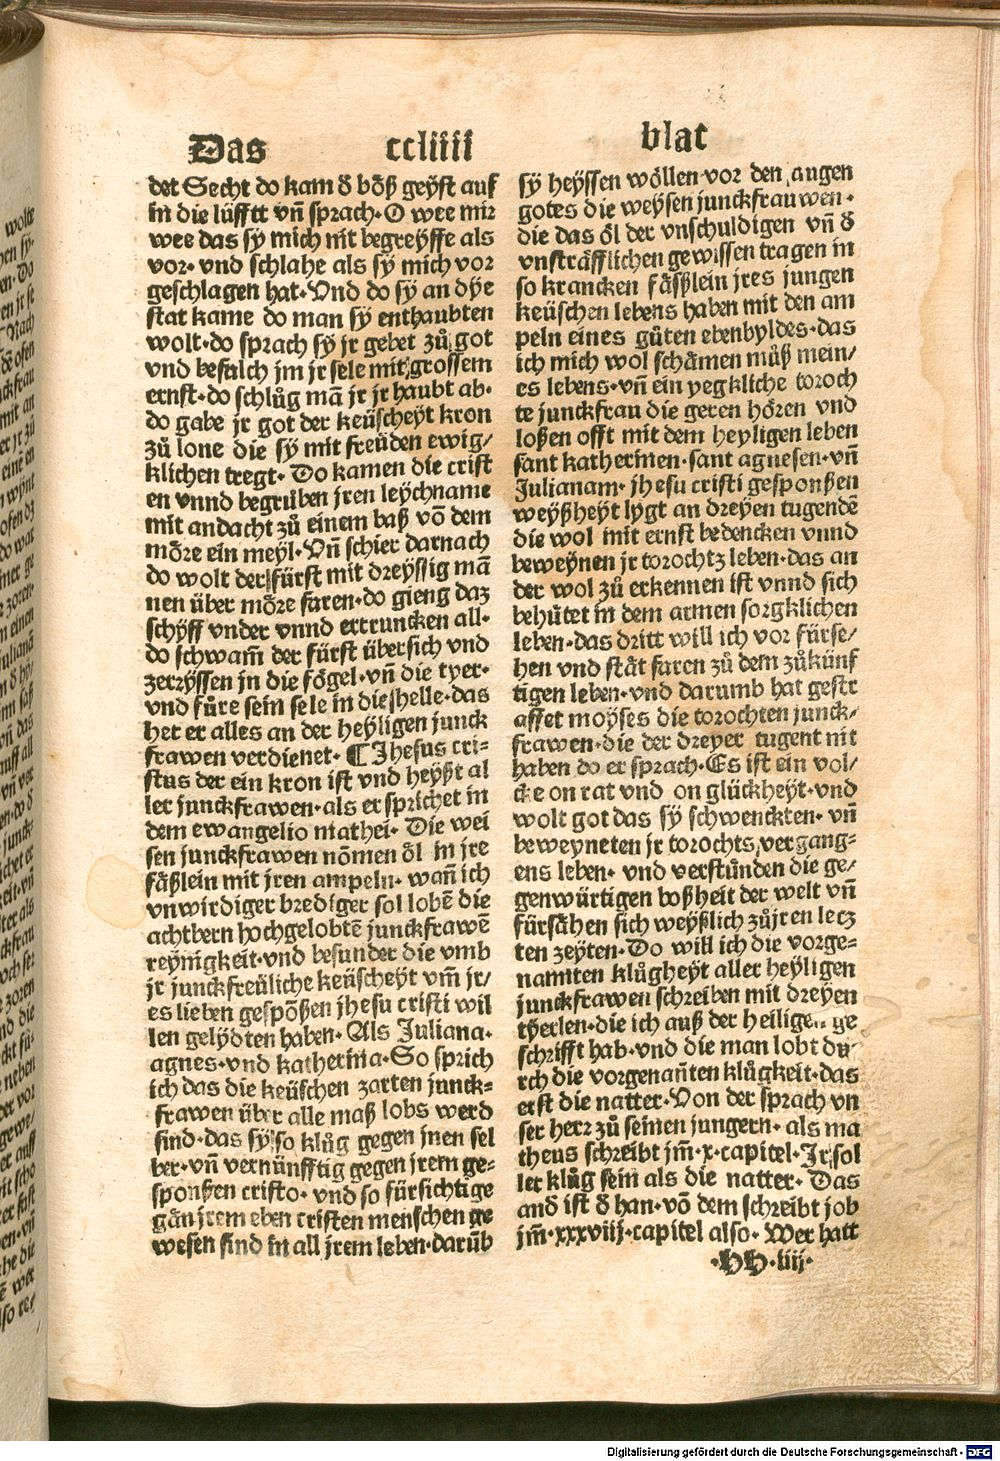 Das ccliiii blat
det Secht do kam d̄ bo̊ß geyſt auf
in die lüfftt vn̄ ſprach· O wee mir
wee das ſÿ mich nit begreyffe als
vor· vnd ſchlahe als ſÿ mich vor
geſchlagen hat· Vnd do ſÿ an dÿe
ſtat kame do man ſÿ enthaubten
wolt· do ſprach ſÿ jr gebet zů got
vnd befalch jm jr ſele mit groſſem
ernſt· do ſchlůg mā jr jr haubt ab·
do gabe jr got der keüſcheyt kron
zů lone die ſÿ mit freüden ewig/
klichen tregt· Do kamen die criſt
en vnnd begrůben jren leÿchname
mit andacht zů einem baß vō dem
möre ein meÿl· Vn̄ ſchier darnach
do wolt der fürſt mit dreyſſig mā
nen über möre faren· do gieng daz
ſchÿff vnder vnnd ertruncken all·
do ſchwam̄ der fürſt überſich vnd
zerzyſſen jn die fögel· vn̄ die tyer·
vnd fůre ſein ſele in die helle· das
het er alles an der heÿligen junck
frawen verdienet· ¶ Jheſus cri⸗
ſtus der ein kron iſt vnd heÿßt al
ler junckfrawen· als er ſprichet in
dem ewangelio mathei· Die wei
ſen junckfrawen nömen öl in jre
fäßlein mit jren ampeln· wan̄ ich
vnwirdiger brediger ſol lobē die
achtbern hochgelobtē junckfrawē
reynigkeit· vnd beſunder die vmb
jr junckfreüliche keüſcheyt vm̄ jr/
es lieben geſpōßen jheſu criſti wil
len gelÿdten haben· Als Juliana·
agnes· vnd katherina· So ſprich
ich das die keüſchen zarten junck⸗
frawen über alle maß lobs werd
ſind· das ſÿ ſo klůg gegen jnen ſel
ber· vn̄ vernünfftig gegen jrem ge⸗
ſponßen criſto· vnd ſo fürſichtige
gän jrem eben criſten menſchen ge
weſen ſind in all jrem leben· darūb
ſÿ heyſſen wöllen vor den augen
gotes die weyſen junckfrauwen·
die das öl der vnſchuldigen vn̄ d̄
vnſträfflichen gewiſſen tragen in
ſo krancken fäſßlein jres jungen
keüſchen lebens haben mit den am
peln eines gůten ebenbyldes· das
ich mich wol ſchämen můß mein/
es lebens· vn̄ ein yegkliche toroch
te junckfrau die geren hören vnd
loßen offt mit dem heyligen leben
ſant katherinen· ſant agneſen· vn̄
Julianam· jheſu criſti geſponßen
weyßheyt lygt an dreyen tugendē
die wol mit ernſt bedencken vnnd
beweynen jr torochtz leben· das an
der wol zů erkennen iſt vnnd ſich
behůtet in dem armen ſorgklichen
leben· das dritt will ich vor fürſe⸗
hen vnd ſtät faren zů dem zůkünf
tigen leben· vnd darumb hat geſtr
affet moÿſes die torochten junck/
frawen· die der dreyer tugent nit
haben do er ſprach· Es iſt ein vol/
cke on rat vnd on glückheyt· vnd
wolt got das ſÿ ſchwenckten· vn̄
beweyneten jr torochts vergang⸗
ens leben· vnd verſtůnden die ge⸗
genwürtigen boßheit der welt vn̄
fürſähen ſich weyßlich zů jren lecz
ten zeyten· Do will ich die vorge⸗
nannten klůgheyt aller heyligen
junckfrawen ſchreiben mit dreyen
tÿerlen· die ich auß der heiligen ge
ſchrifft hab· vnd die man lobt du
rch die vorgenan̄ten klůgkeit· das
erſt die natter· Von der ſprach vn
ſer herr zů ſeinen jungern· als ma
theus ſchreibt jm̄· x· capitel· Jr ſol
let klůg ſein als die natter· Das
and̄ iſt d̄ han· vō dem ſchreibt job
jm̄· xxxviij· capitel alſo· Wer hatt
·hh· iiij·
Digitalisierung gefördert durch die Deutsche Forschungsgemeinschaft - DFG